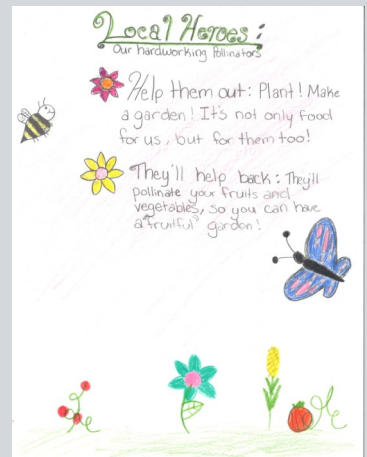 Local Heroes:
Our hardworking Pollinators
Help them out: Plant! Make
a garden! It's not only food
for us, but for them too!
They'll help back: They'll
pollinate your fruits and
vegetables, so you can have
a "fruitful" garden!